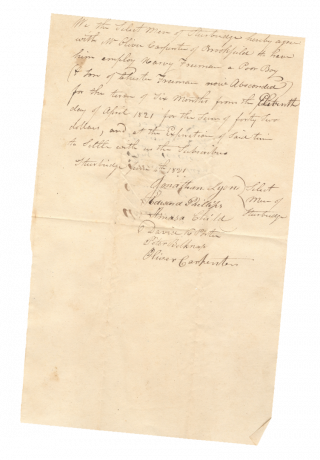 We the Select Men of Sturbridge hereby agree
with Mr Oliver Carpenter of Brookfield to have
him employ Harvey Freeman a Poor Boy
(& Son of Freeman now Absconded)
for the term of Six Months from the
day of April 1821 for the Sum of forty two
dollars, and at the Expiration of said time
to Settle with us the Subscribers
Sturbridge 1821
Jonathan Lyon
Edward Phillips
Amasa Child
David
Oliver Carpenter
Select
Men of
Sturbridge